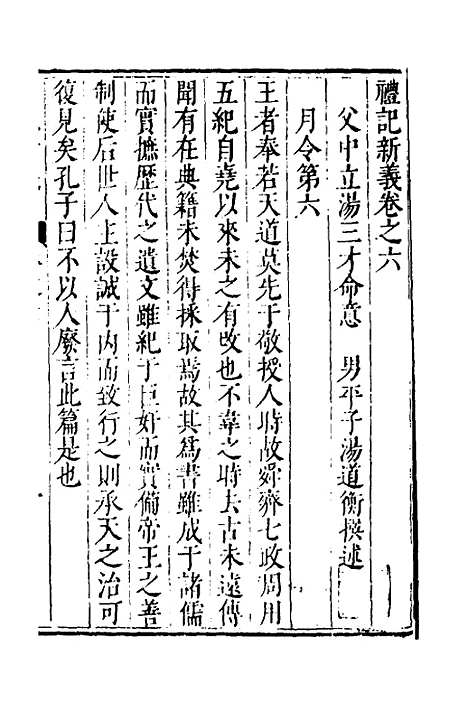 禮記新義卷之六
父中立湯三才命意 男平子湯道衡撰述
月令第六
王者奉若天道莫先于敬授人時故舜齊七政周用
五紀自堯以來未之有改也不韋之時去古未遠傳
聞有在典籍未焚得採取焉故其爲書雖成于諸儒
而實摭歷代之遺文雖紀于巨奸而實備帝王之善
制使后世人主設誠于内而致行之則承天之治可
復見矣孔子曰不以人廢言此篇是也